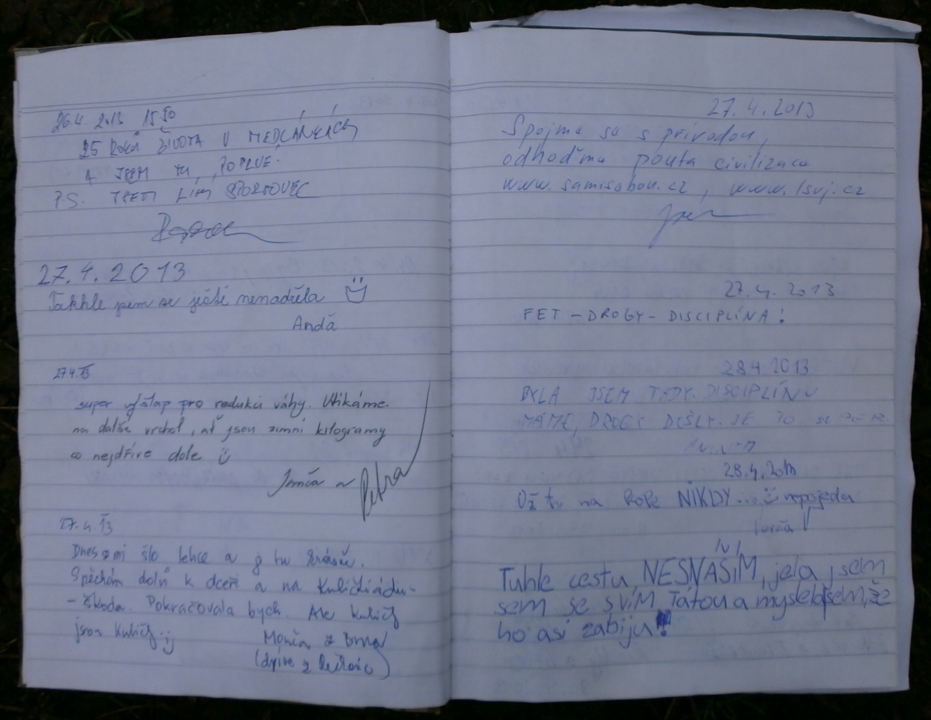 26.4. 2013 15 50
25 ROKŮ ŽIVOTA V MEDLÁNKÁCH
A JSEM TU POPRVÉ.
P.S. TŘETÍ LÍNÍ SPORTOVEC
27.4.2013
Takhle jsem se ještě nenadřela
Anďa
27.4.13
super výšlap pro redukci váhy. Utíkáme
na další vrchol, ať jsou zimní kilogramy
co nejdříve dole
Jméča a Petra
27.4.13
Dnes mi šlo lehce a je tu krásně.
Spěchám dolů k dceři a na
- škoda. Pokračovala bych. Ale kuličky
jsou kuličky
z Brna
(dříve z
27.4.2013
Spojme sa s prírodou,
odhoďme pouta civilizace
www.samisobou.cz, www.lsvj.cz
27.4.2013
FET-DROGY-DISCIPLÍNA!
28.4.2013
BYLA JSEM TADY. DISCIPLÍNU
MÁME, DROGY DOŠLY.
28.4.2013
Už tu na kole NIKDY... nepojedu
Tuhle cestu NESNÁŠÍM, jela jsem
sem se svím Tátou a myslela jsem, že
ho asi zabiju!